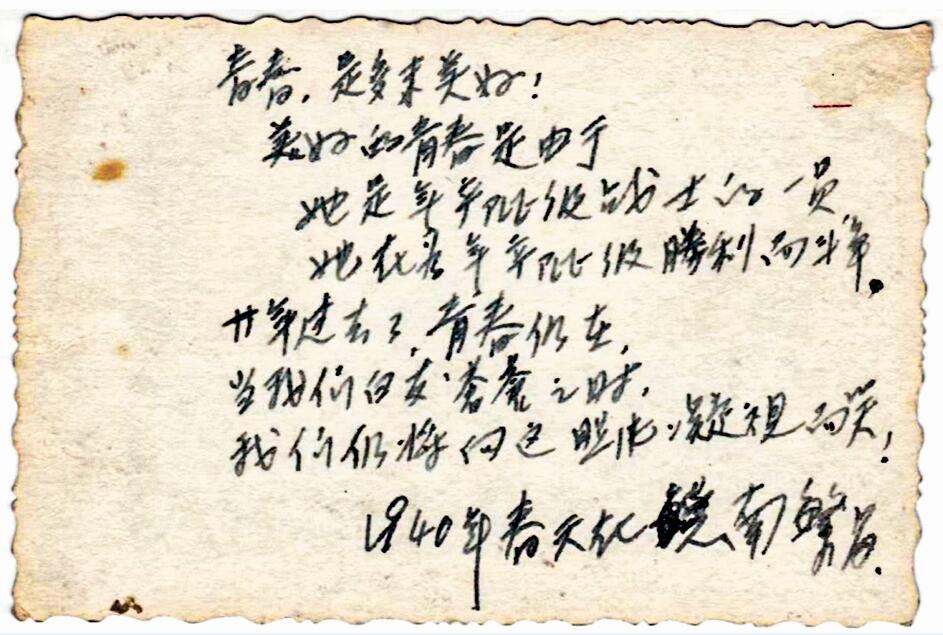 青春,是多末美好!
美好的青春是由于
她是无产阶级战士的一员,
她在为无产阶级勝利而斗争。
廿年过去了,青春仍在,
当我们白发苍苍之时,
我们仍将向这照片凝视而笑!
1940年春天在皖南繁昌.